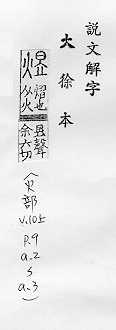 說文解字
大徐本
煜 熠也从火昱聲余六切
〈火部
v.10上
P.9
a.2
s
a.3〉